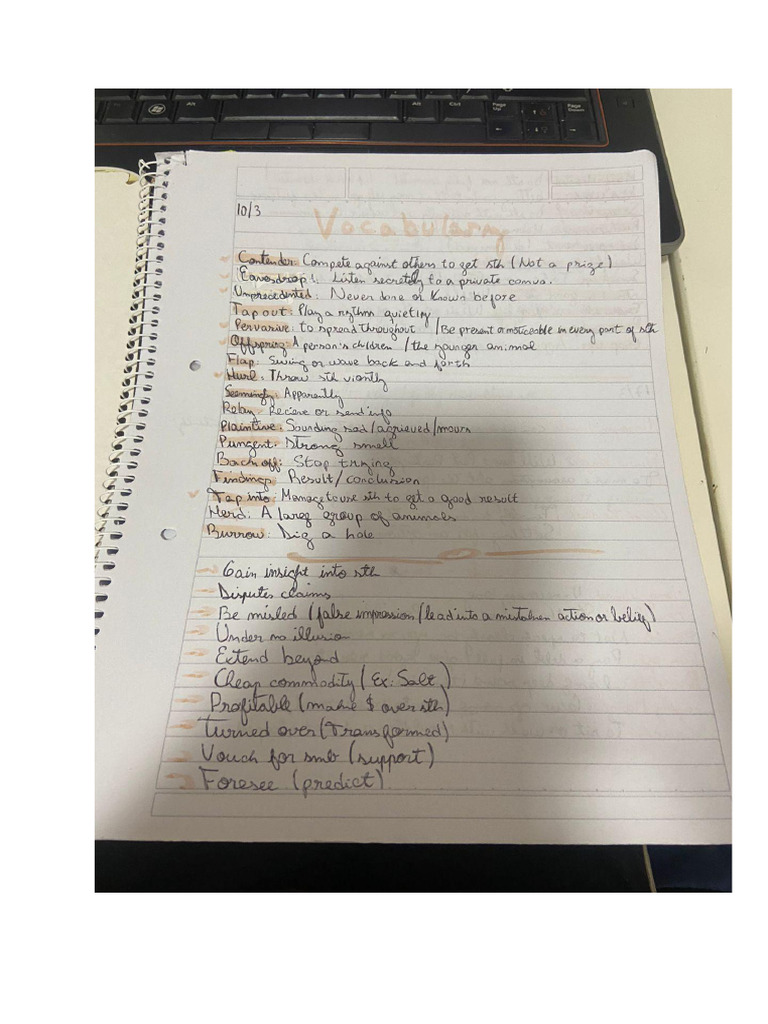 Alt
Alt
Ctrl
Page Up
Page Down
10/3
Vocabulary
Contender: Compete against others to get sth (Not a prize)
Eavesdrop: Listen secretely to a private conva.
Unprecedented: Never done or known before
Tap out: Play a rythm quietly
Pervasive: to spread throughout / Be present or noticeable in every part of sth
Offspring: A person's children / the younger animal
Flap: Swing or wave back and forth
Hurl: Throw sth viently
Seemingly: Apparently
Relay: Recieve or send info
Plaintive: Sounding sad/agrieved/mourn
Pungent: Strong smell
Back off: Stop trying
Finding: Result / conclusion
Tap into: Manage to use sth to get a good result
Herd: A larg group of animals
Burrow: Dig a hole
Gain insight into sth
Disputes claims
Be misled (false impression / lead into a mistaken action or belief)
Under no illusion
Extend beyond
Cheap commodity (Ex: Salt)
Profitable (make $ over sth)
Turned over (Transformed)
Vouch for smb (support)
Foresee (predict)